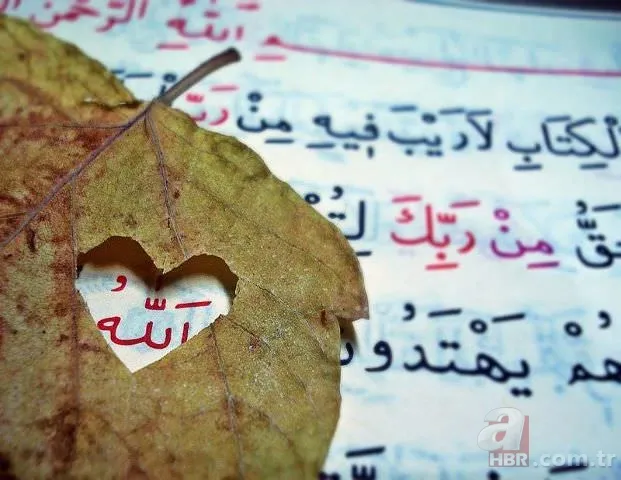 اللّٰهِ الرَّحْمٰنِ
الْكِتَابِ لَارَيْبَ فٖيهِ مِنْ رَبِّ
حَقُّ مِنْ رَبِّكَ لِتُنْ
هُمْ يَهْتَدُونَ
اَللّٰهُ
a
HBR.com.tr